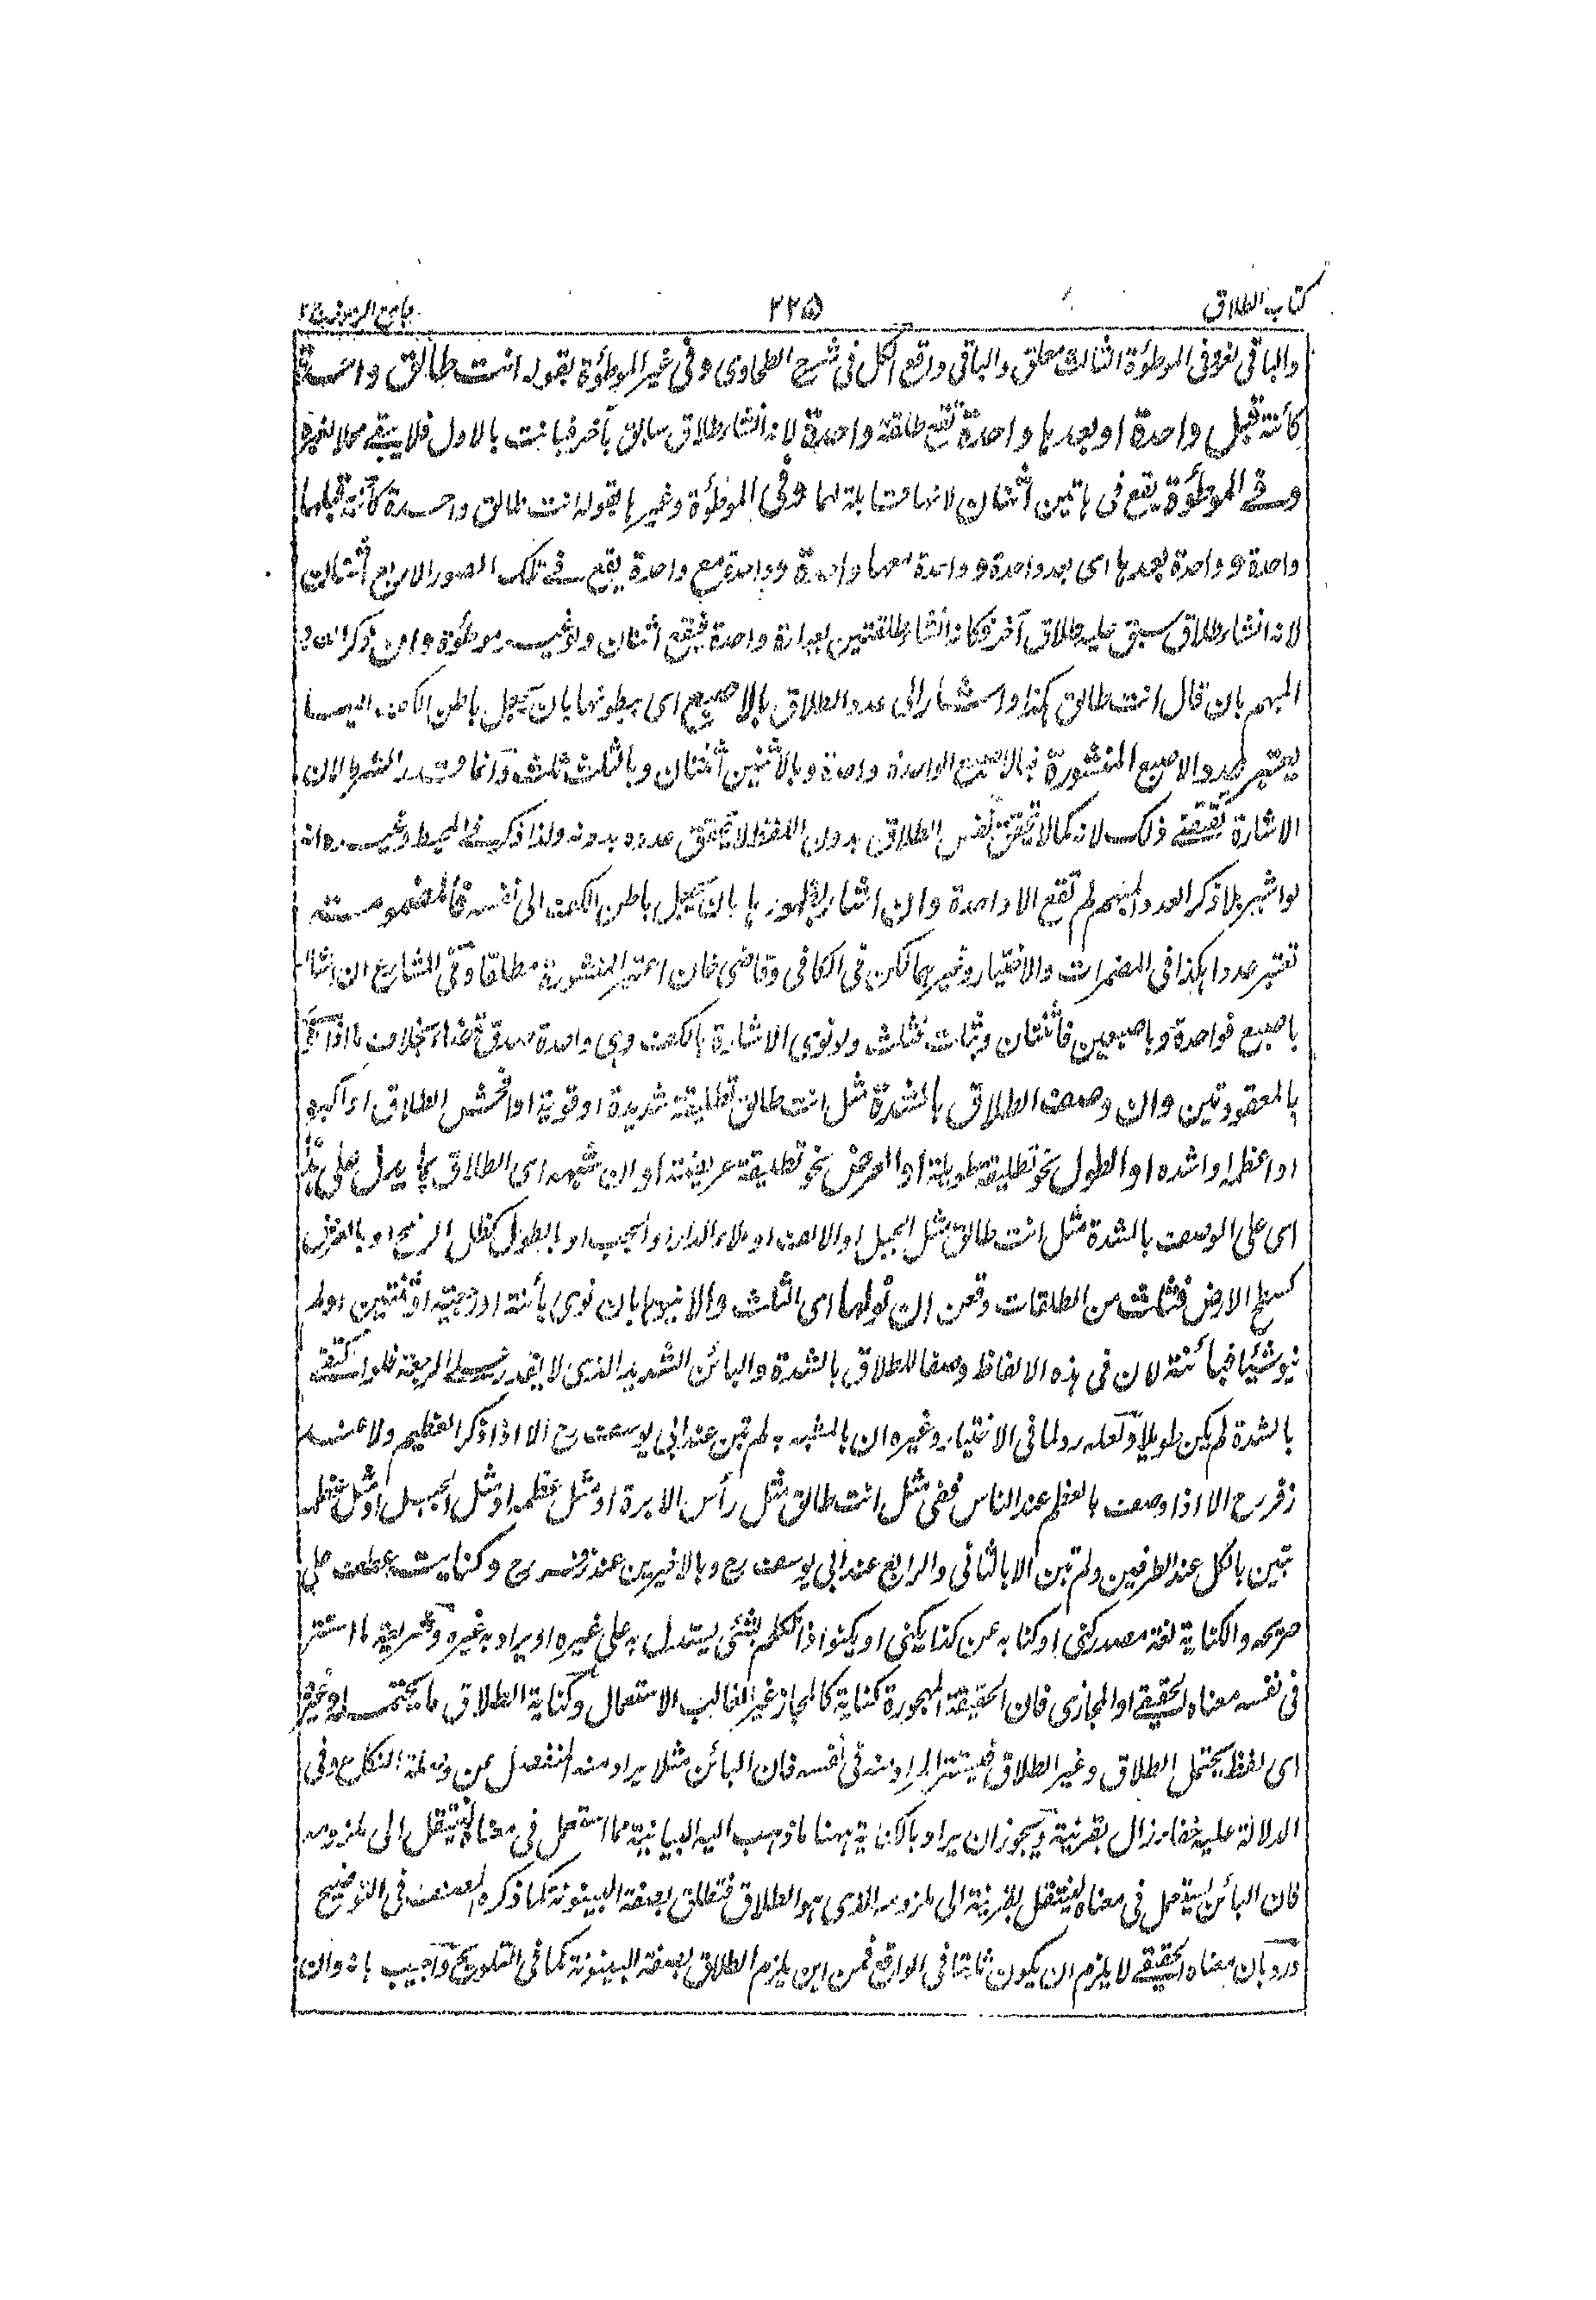 كتاب الطلاق
٢٢٥
جامع الرموز ج٢
والباقي لغو وفى الموطؤة الثالث معلق والباقى وقع الكل فى شرح الطحاوى وفى غير الموطؤة بقوله انت طالق واحدة
كائنة قبل واحدة او بعدها واحدة تقع طلقة واحدة لانه انشاء طلاق سابق بآخر فبانت بالاول فلا يبقى محلا لغيره
وفى الموطؤة يقع فى هاتين اثنتان لانها قابلة لهما وفى الموطؤة وغيرها بقوله انت طالق واحدة كائنة قبلها
واحدة وواحدة بعدها اى بعد واحدة وواحدة معها واحدة وواحدة مع واحدة يقع فى تلك الصور الاربع اثنتان
لانه انشاء طلاق سبق عليه طلاق آخر فكانه انشاء طلقتين بعبارة واحدة فيقع اثنتان ولو غير موطؤة وان ذكر العدد
المبهم بان قال انت طالق هكذا واشار الى عدد الطلاق بالاصبع اى ببطونها بان يجعل باطن الكف اليها
يعتبر عدد الاصبع المنشورة فبالاصبع الواحدة واحدة وبالاثنين اثنتان وبالثلث ثلث وانما قدر الشرط لان
الاشارة تقتضى ذلك لانه كما لا يتحقق نفس الطلاق بدون اللفظ لا يتحقق عدده بدونه ولذا ذكر فى المحيط وغيره انه
لو اشير بلا ذكر العدد المبهم لم تقع الا واحدة وان اشار بظهورها بان يجعل باطن الكف الى نفسه فالمضمومة
تعتبر عددا هكذا فى المضمرات والاختيار وغيرهما لكن فى الكافى وقاضى خان اعتبر المنشورة مطلقا وفى المشارع ان اشار
باصبع فواحدة وباصبعين فاثنتان وبثلث فثلث ولو نوى الاشارة بالكف وهى واحدة صدق قضاء بخلاف ما اذا
بالمعقودتين وان وصف الطلاق بالشدة مثل انت طالق تطليقة شديدة او قوية او افحش الطلاق او اكبره
او اعظمه او اشده او الطول نحو تطليقة طويلة او العرض نحو تطليقة عريضة او ان شبهه اى الطلاق بما يدل على هذا
اى على الوصف بالشدة مثل انت طالق مثل الجبل او الالف او ملاء الدار او الجب او بالطول كظل الرمح او بالعرض
كسطح الارض فثلث من الطلقات وقعن ان نواها اى الثلث والا ينوها بان نوى بائنة او رجعية او ثنتين او لم
ينو شيئا فبائنة لان فى هذه الالفاظ وصفا للطلاق بالشدة والبائن الشديد الذى لا يقدر على الرجعة فلو اكتفى
بالشدة لم يكن طويلا ولعله رد لما فى الاختيار وغيره ان بالمشبه به لم تبن عند ابى يوسف رح الا اذا ذكر العظيم ولا عند
زفر رح الا اذا وصف بالعظم عند الناس ففى مثل انت طالق مثل رأس الابرة او مثل عظمه او مثل الجبل او مثل عظمه
تبين بالكل عند الطرفين ولم تبن الا بالثانى والرابع عند ابى يوسف رح وبالاخيرين عند زفر رح وكنايت عطف على
صريحه والكناية لغة مصدر كنى او كنا به عن كذا يكنى او يكنو اذا تكلم بشئ يستدل به على غيره او يراد به غيره وشريعة ما استتر
فى نفسه معناه الحقيقى او المجازى فان الحقيقة المهجورة كناية كالمجاز غير الغالب الاستعمال وكناية الطلاق ما يحتمله وغيره
اى لفظ يحتمل الطلاق وغير الطلاق فيستتر المراد منه فى نفسه فان البائن مثلا يراد منه المنفصل عن وصلة النكاح وفى
الدلالة عليه خفاء زال بقرينة ويجوز ان يراد بالكناية ههنا ما ذهب اليه البيانية مما استعمل فى معناه لينتقل الى ملزومه
فان البائن يستعمل فى معناه لينتقل بقرينة الى ملزومه الذى هو الطلاق فتطلق بصفة البينونة كما ذكره المصنف فى التوضيح
ورد بان معناه الحقيقى لا يلزم ان يكون ثابتا فى الواقع فمن اين يلزم الطلاق بصفة البينونة كما فى التلويح واجيب بانه وان